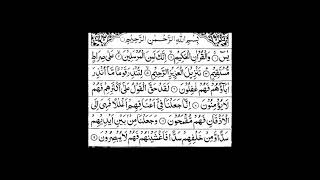 بِسْمِ اللهِ الرَّحْمٰنِ الرَّحِيْمِ
يٰسٓ ۝ وَالْقُرْاٰنِ الْحَكِيْمِ ۝ اِنَّكَ لَمِنَ الْمُرْسَلِيْنَ ۝ عَلٰى صِرَاطٍ
مُّسْتَقِيْمٍ ۝ تَنْزِيْلَ الْعَزِيْزِ الرَّحِيْمِ ۝ لِتُنْذِرَ قَوْمًا مَّاۤ اُنْذِرَ
اٰبَآؤُهُمْ فَهُمْ غٰفِلُوْنَ ۝ لَقَدْ حَقَّ الْقَوْلُ عَلٰۤى اَكْثَرِهِمْ فَهُمْ
لَا يُؤْمِنُوْنَ ۝ اِنَّا جَعَلْنَا فِيْۤ اَعْنَاقِهِمْ اَغْلٰلًا فَهِيَ اِلَى
الْاَذْقَانِ فَهُمْ مُّقْمَحُوْنَ ۝ وَجَعَلْنَا مِنْۢ بَيْنِ اَيْدِيْهِمْ
سَدًّا وَّمِنْ خَلْفِهِمْ سَدًّا فَاَغْشَيْنٰهُمْ فَهُمْ لَا يُبْصِرُوْنَ ۝